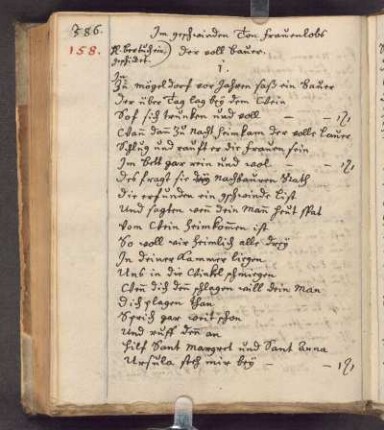 386.
Im geschwinden Ton Frauenlobs
158.
der voll Baur.
1.
Zu mögeldorf vor Jahren saß ein Baur
Der über Tag lag bey dem Wein
Sof sich trunken und voll
Wan dan zu Nacht heimkam der volle Laur
Schlug und rauft er die frauen sein
Im Bett gar rein und wol
des fragt sie drey Nachbauren Rath
die erfunden ein geschwinde List
Und sagten wen dein Man heut spat
Vom Wein heimkommen ist
So woll wir heimlich alle drey
In deiner Kammer liegen
Uns in die Winkel schmiegen
Wen dich den schlagen will dein Man
dich plagen than
Sprich gar weit schon
Und ruff den an
hilf Sant Margret und Sant Anna
Ursula steh mir bey